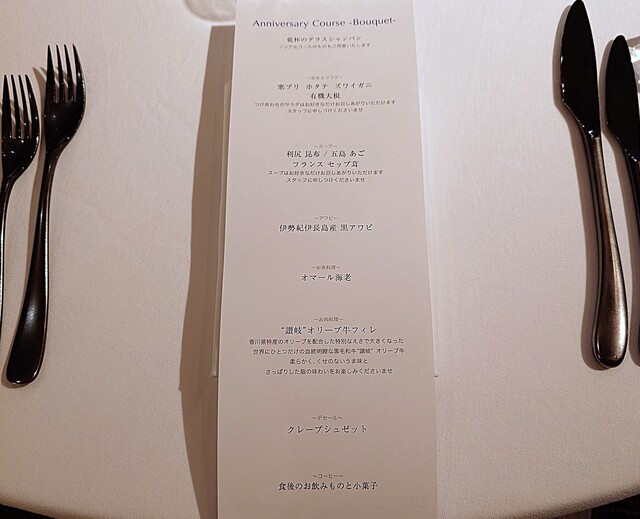 Anniversary Course -Bouquet-
乾杯のグラスシャンパン
ノンアルコールのものもご用意いたします
～前菜＆サラダ～
寒ブリ ホタテ ズワイガニ
有機大根
つけあわせのサラダはお好きなだけお召しあがりいただけます
スタッフに申しつけくださいませ
～スープ～
利尻 昆布 / 五島 あご
フランス セップ茸
スープはお好きなだけお召しあがりいただけます
スタッフに申しつけくださいませ
～アワビ～
伊勢紀伊長島産 黒アワビ
～お魚料理～
オマール海老
～お肉料理～
“讃岐”オリーブ牛フィレ
香川県特産のオリーブを配合した特別なえさで大きくなった
世界にひとつだけの血統明瞭な黒毛和牛“讃岐” オリーブ牛
柔らかく、くせのないうま味と
さっぱりした脂の味わいをお楽しみくださいませ
～デセール～
クレープシュゼット
～コーヒー～
食後のお飲みものと小菓子